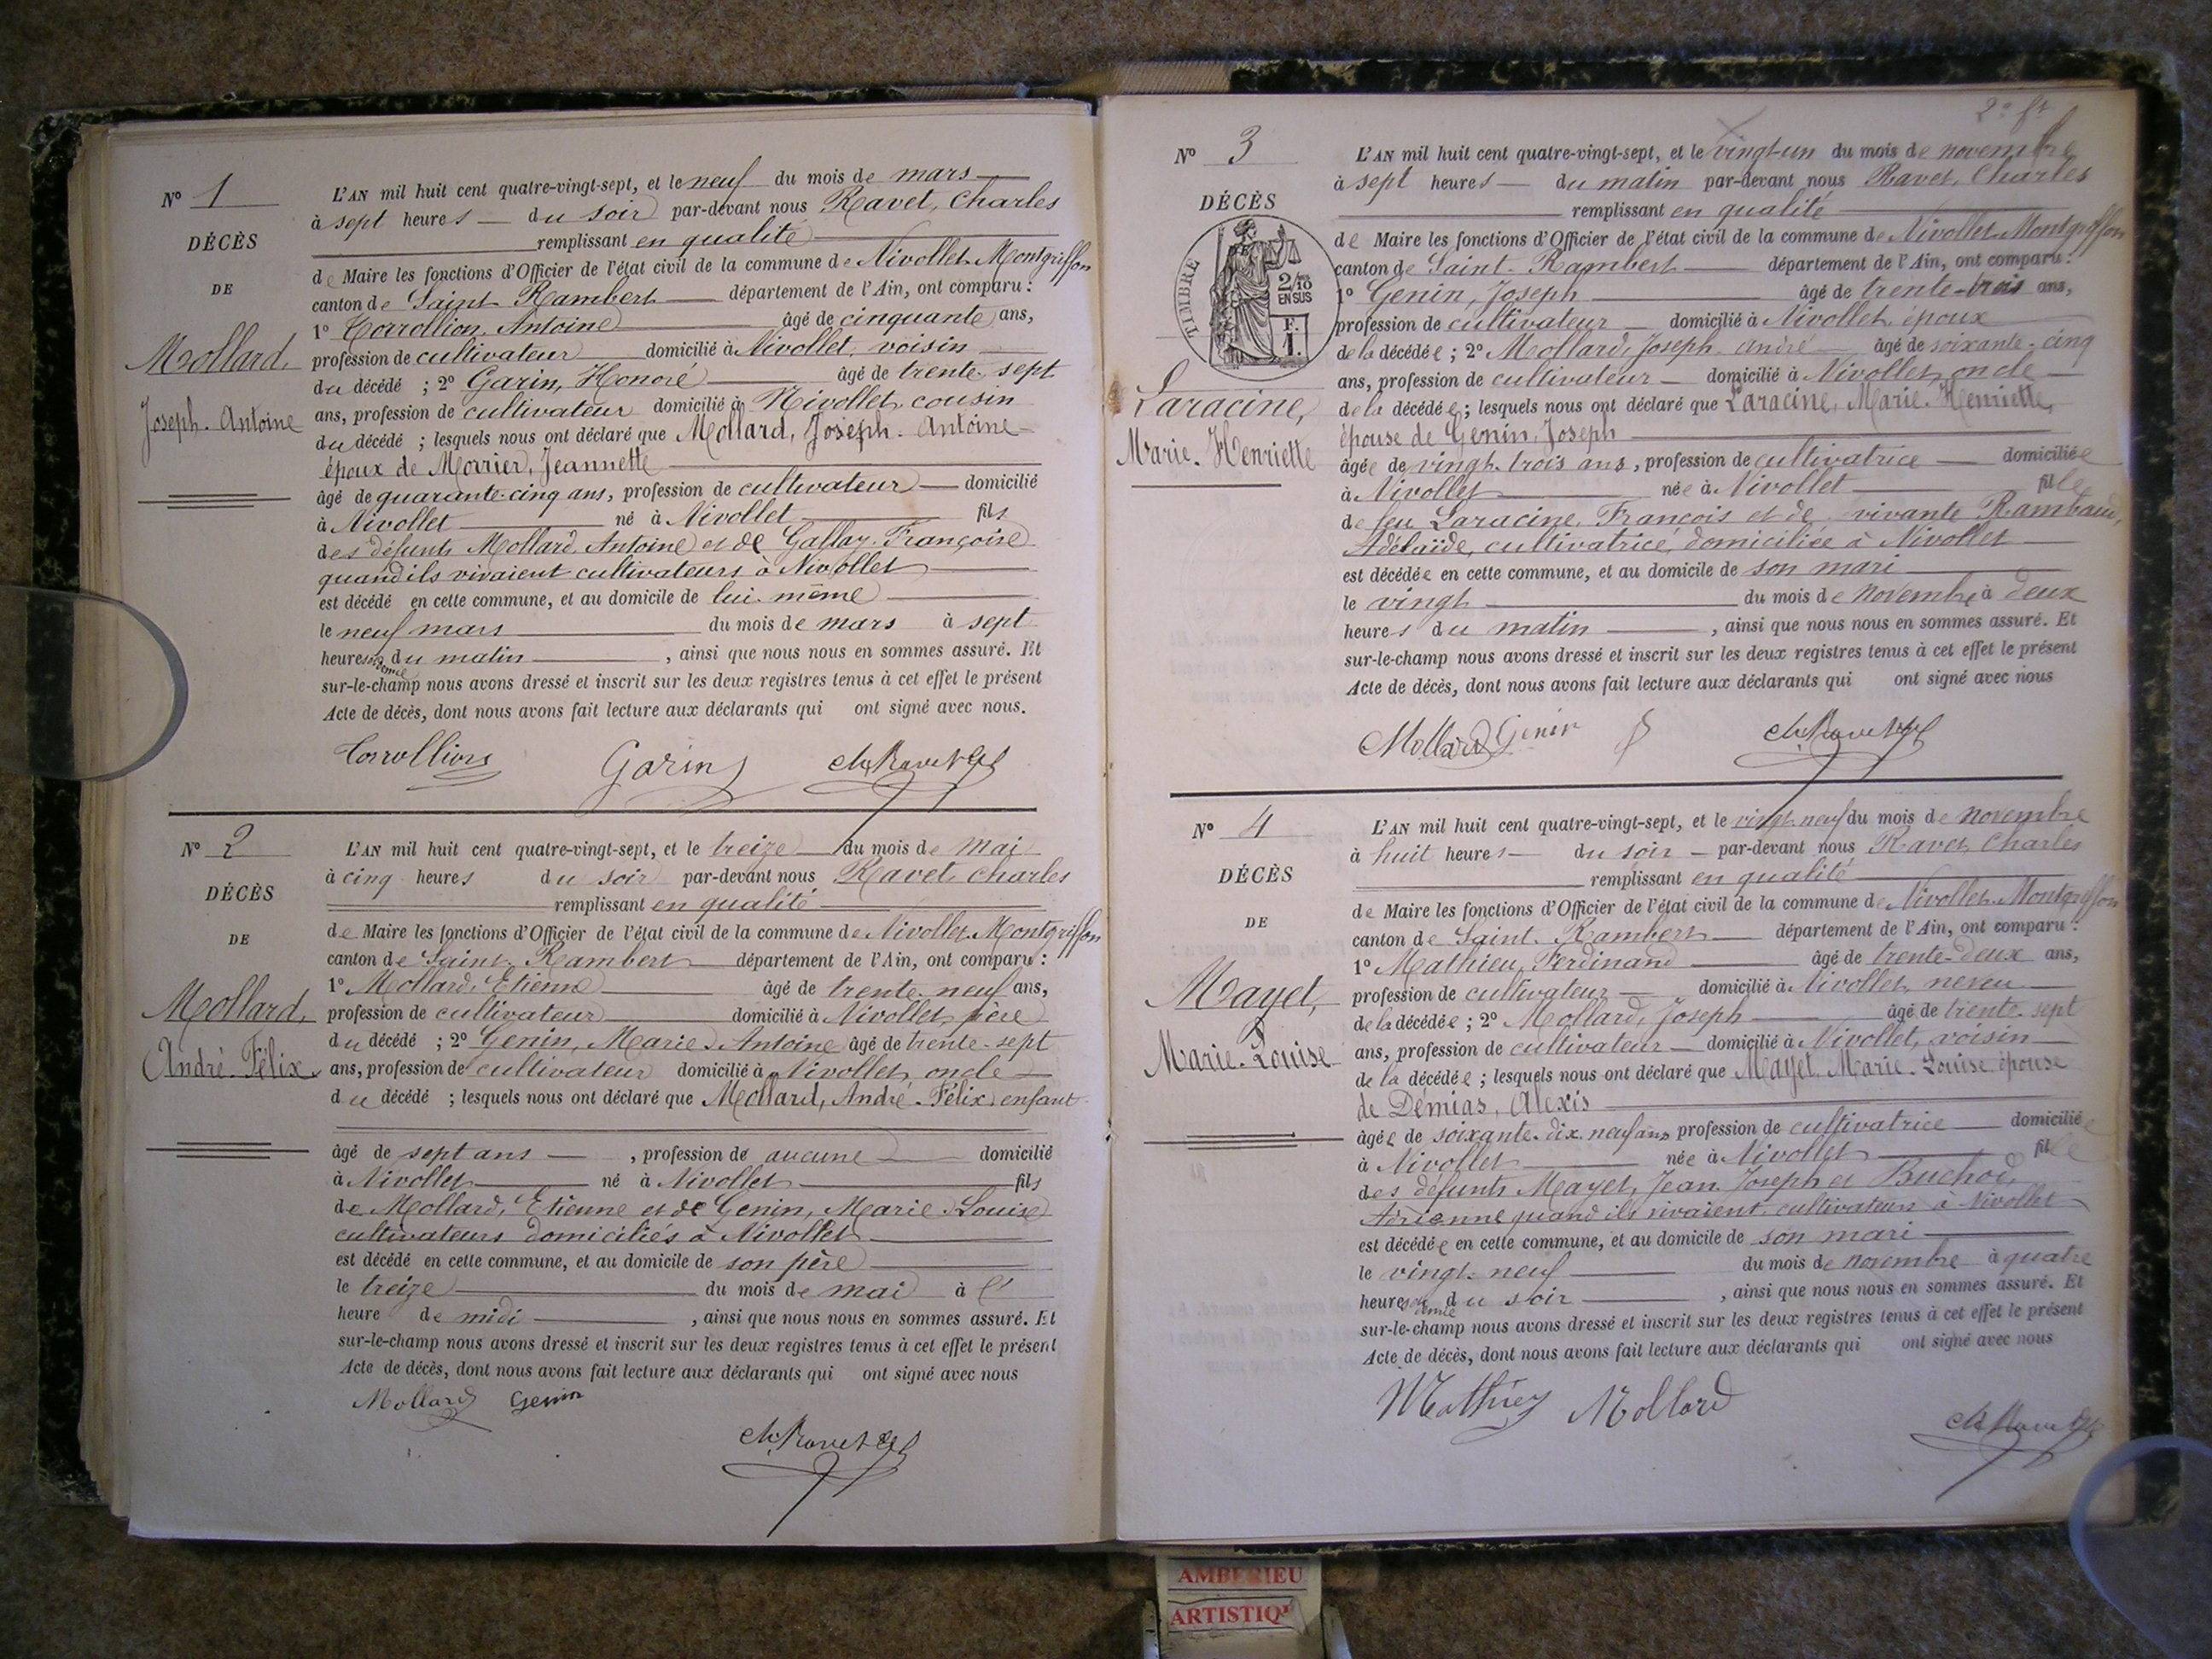 Nº 1
DÉCÈS
DE
Mollard,
Joseph-Antoine
L'AN mil huit cent quatre-vingt-sept, et le neuf du mois de mars
à sept heures du soir par-devant nous Ravet, Charles
remplissant en qualité
de Maire les fonctions d'Officier de l'état civil de la commune de Nivollet-Montgriffon
canton de Saint-Rambert département de l'Ain, ont comparu :
1º Corrollion, Antoine âgé de cinquante ans,
profession de cultivateur domicilié à Nivollet, voisin
du décédé ; 2º Garin, Honoré âgé de trente-sept
ans, profession de cultivateur domicilié à Nivollet, cousin
du décédé ; lesquels nous ont déclaré que Mollard, Joseph-Antoine
époux de Morrier, Jeannette
âgé de quarante-cinq ans, profession de cultivateur domicilié
à Nivollet né à Nivollet fils
des défunts Mollard, Antoine et de Françoise
quand ils vivaient cultivateurs à Nivollet
est décédé en cette commune, et au domicile de lui-même
le neuf mars du mois de mars à sept
heures et demie du matin, ainsi que nous nous en sommes assuré. Et
sur-le-champ nous avons dressé et inscrit sur les deux registres tenus à cet effet le présent
Acte de décès, dont nous avons fait lecture aux déclarants qui ont signé avec nous.
Corrollion Garin Ch Ravet
Nº 2
DÉCÈS
DE
Mollard,
André-Félix
L'AN mil huit cent quatre-vingt-sept, et le treize du mois de mai
à cinq heures du soir par-devant nous Ravet, Charles
remplissant en qualité
de Maire les fonctions d'Officier de l'état civil de la commune de Nivollet-Montgriffon
canton de Saint-Rambert département de l'Ain, ont comparu :
1º Mollard, Etienne âgé de trente-neuf ans,
profession de cultivateur domicilié à Nivollet, père
du décédé ; 2º Genin, Marie-Antoine âgé de trente-sept
ans, profession de cultivateur domicilié à Nivollet, oncle
du décédé ; lesquels nous ont déclaré que Mollard, André-Félix, enfant
âgé de sept ans, profession de aucune domicilié
à Nivollet né à Nivollet fils
de Mollard, Etienne et de Genin, Marie-Louise
cultivateurs domiciliés à Nivollet
est décédé en cette commune, et au domicile de son père
le treize du mois de mai à l'
heure de midi, ainsi que nous nous en sommes assuré. Et
sur-le-champ nous avons dressé et inscrit sur les deux registres tenus à cet effet le présent
Acte de décès, dont nous avons fait lecture aux déclarants qui ont signé avec nous
Mollard Genin
Ch Ravet
Nº 3
DÉCÈS
TIMBRE
2/10
EN SUS
F.
1.
Laracine,
Marie-Henriette
L'AN mil huit cent quatre-vingt-sept, et le vingt-un du mois de novembre
à sept heures du matin par-devant nous Ravet, Charles
remplissant en qualité
de Maire les fonctions d'Officier de l'état civil de la commune de Nivollet-Montgriffon
canton de Saint-Rambert département de l'Ain, ont comparu :
1º Genin, Joseph âgé de trente-trois ans,
profession de cultivateur domicilié à Nivollet, époux
de la décédée ; 2º Mollard, Joseph-André âgé de soixante-cinq
ans, profession de cultivateur domicilié à Nivollet, oncle
de la décédée ; lesquels nous ont déclaré que Laracine, Marie-Henriette,
épouse de Genin, Joseph
âgée de vingt-trois ans, profession de cultivatrice domiciliée
à Nivollet née à Nivollet fille
de feu Laracine, François et de vivante Rambaud,
Adélaïde, cultivatrice, domiciliée à Nivollet
est décédée en cette commune, et au domicile de son mari
le vingt du mois de novembre à deux
heures du matin, ainsi que nous nous en sommes assuré. Et
sur-le-champ nous avons dressé et inscrit sur les deux registres tenus à cet effet le présent
Acte de décès, dont nous avons fait lecture aux déclarants qui ont signé avec nous
Mollard Genin Ch Ravet
Nº 4
DÉCÈS
DE
Mayet,
Marie-Louise
L'AN mil huit cent quatre-vingt-sept, et le vingt-neuf du mois de novembre
à huit heures du soir par-devant nous Ravet, Charles
remplissant en qualité
de Maire les fonctions d'Officier de l'état civil de la commune de Nivollet-Montgriffon
canton de Saint-Rambert département de l'Ain, ont comparu :
1º Mathieu, Ferdinand âgé de trente-deux ans,
profession de cultivateur domicilié à Nivollet, neveu
de la décédée ; 2º Mollard, Joseph âgé de trente-sept
ans, profession de cultivateur domicilié à Nivollet, voisin
de la décédée ; lesquels nous ont déclaré que Mayet, Marie-Louise épouse
de Démias, Alexis
âgée de soixante-dix-neuf ans profession de cultivatrice domiciliée
à Nivollet née à Nivollet fille
des défunts Mayet, Jean-Joseph et Buchod,
Adrienne quand ils vivaient, cultivateurs à Nivollet
est décédée en cette commune, et au domicile de son mari
le vingt-neuf du mois de novembre à quatre
heures et demie du soir, ainsi que nous nous en sommes assuré. Et
sur-le-champ nous avons dressé et inscrit sur les deux registres tenus à cet effet le présent
Acte de décès, dont nous avons fait lecture aux déclarants qui ont signé avec nous
Mathieu Mollard
Ch Ravet
AMBERIEU
ARTISTIQ